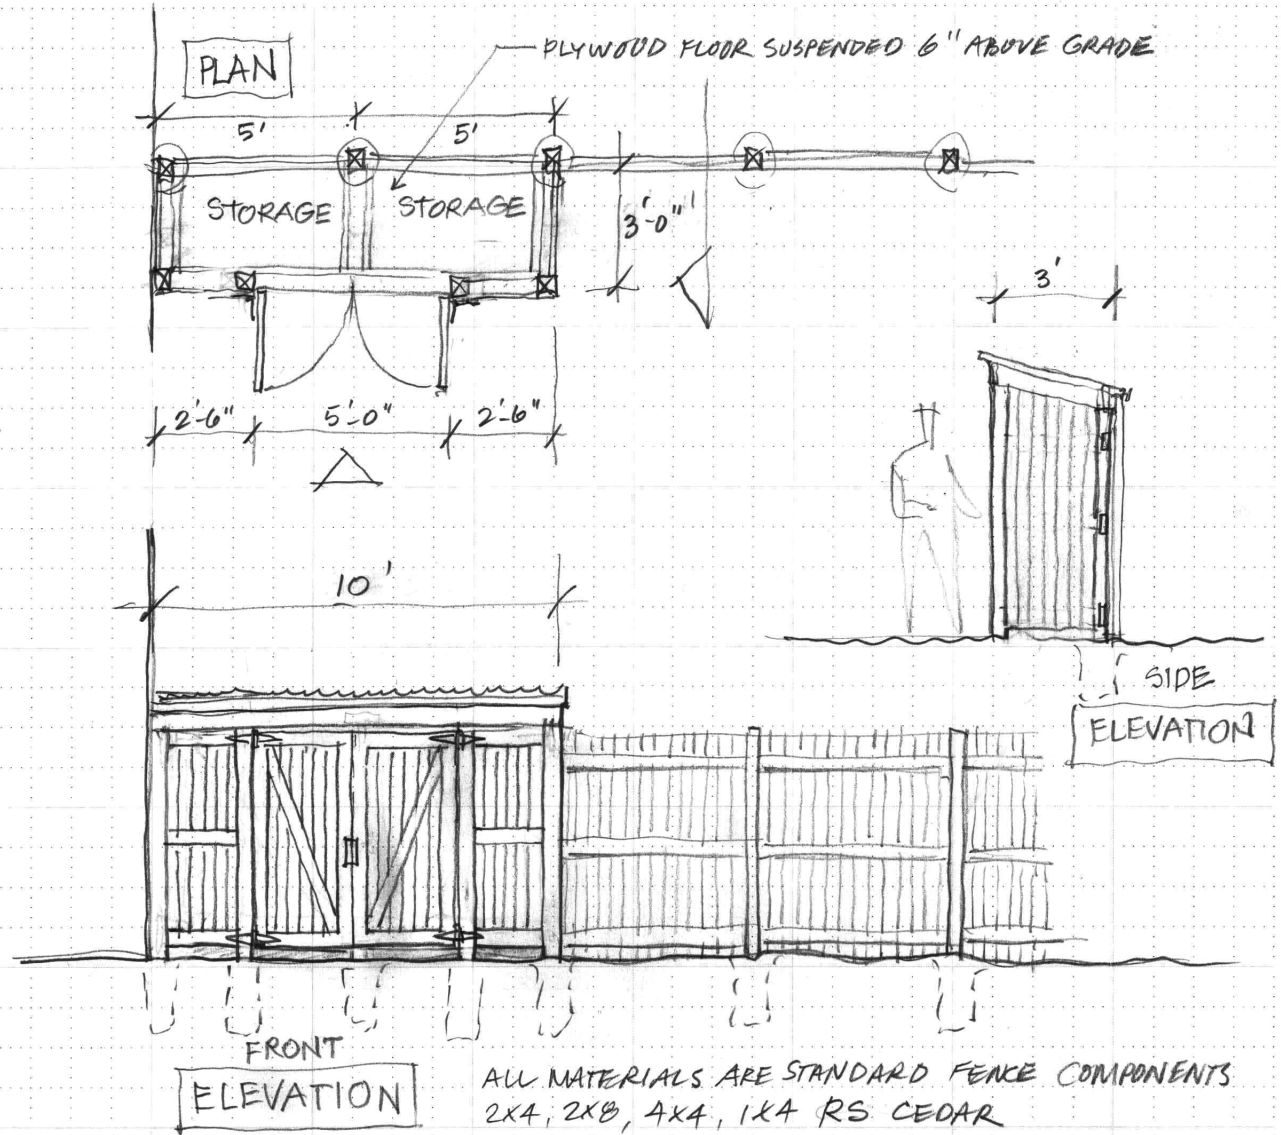 PLYWOOD FLOOR SUSPENDED 6" ABOVE GRADE
PLAN
5'
5'
STORAGE
STORAGE
3'-0"
3'
2'-6"
5'-0"
2'-6"
10'
SIDE
ELEVATION
FRONT
ELEVATION
ALL MATERIALS ARE STANDARD FENCE COMPONENTS
2X4, 2X8, 4X4, 1X4 RS CEDAR